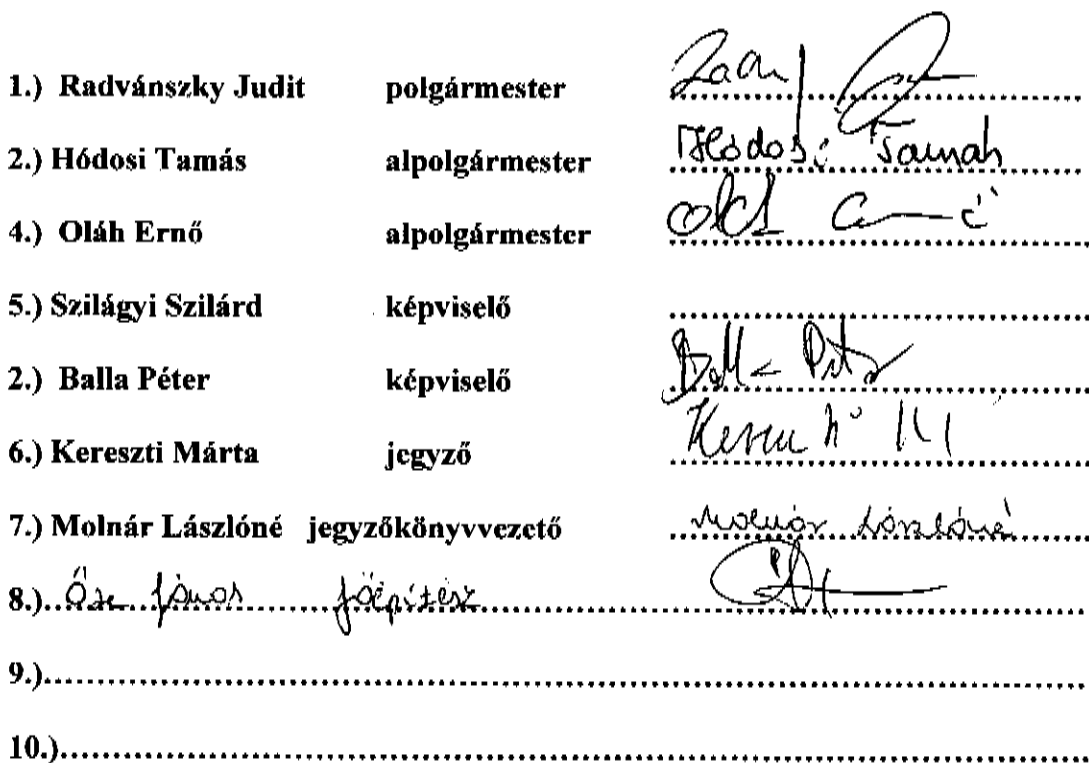 1.) Radvánszky Judit polgármester
2.) Hódosi Tamás alpolgármester Hódosi Tamás
4.) Oláh Ernő alpolgármester
5.) Szilágyi Szilárd képviselő
2.) Balla Péter képviselő Balla Péter
6.) Kereszti Márta jegyző
7.) Molnár Lászlóné jegyzőkönyvvezető Molnár Lászlóné
8.) Őze János főépítész
9.)
10.)